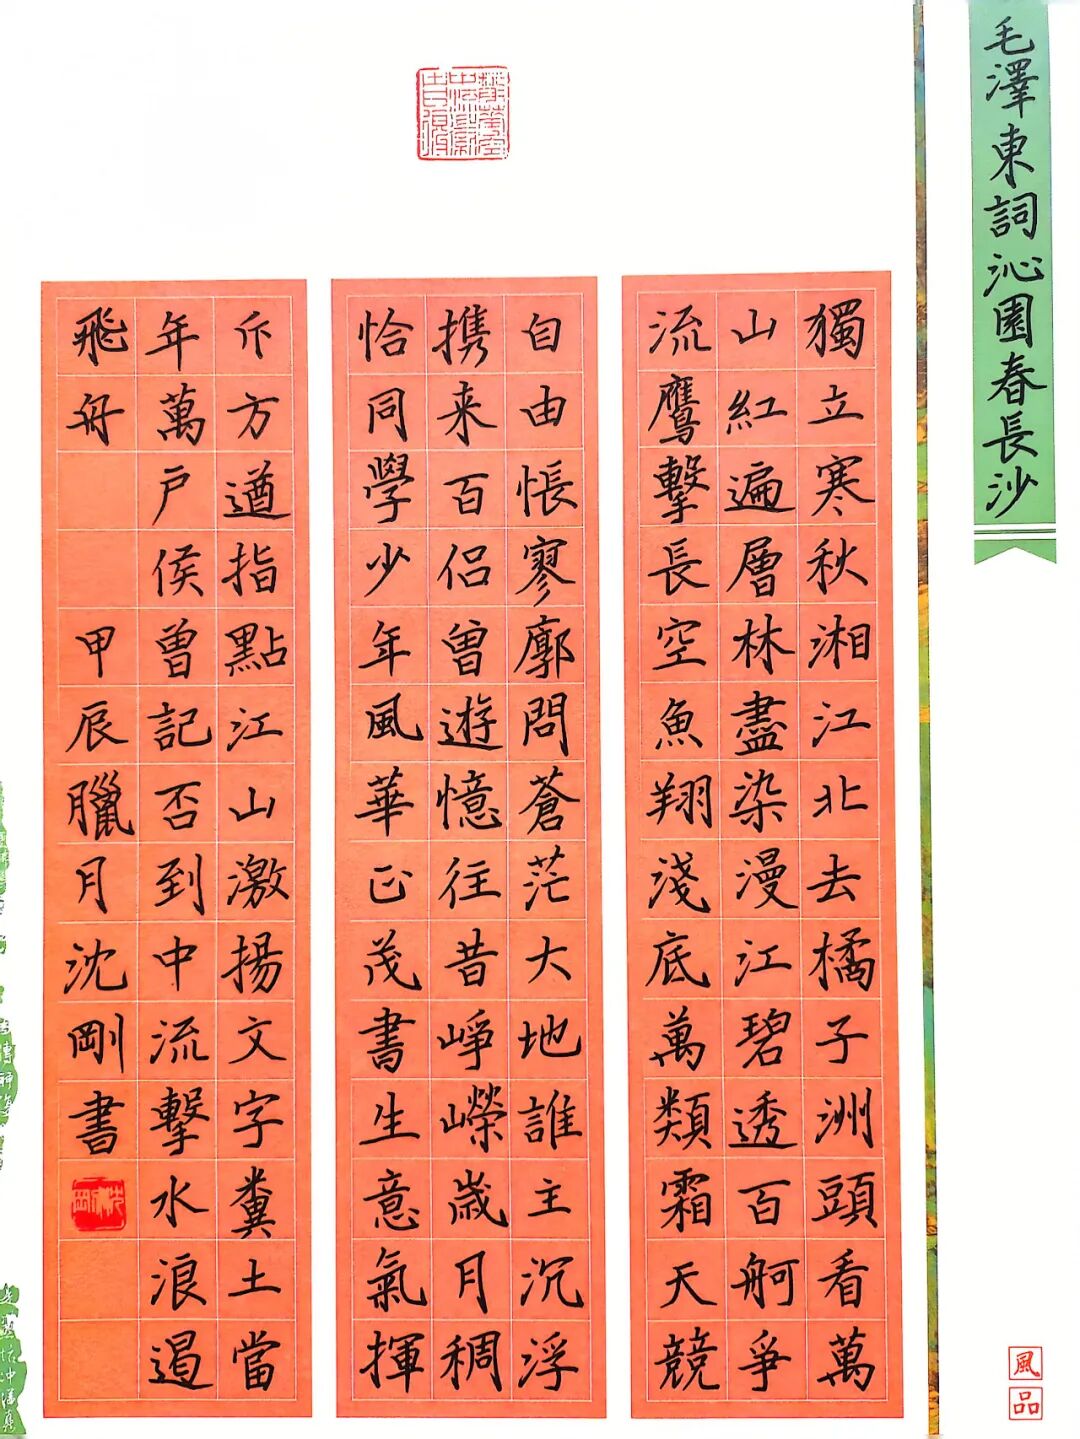 毛澤東詞沁園春長沙
獨立寒秋湘江北去橘子洲頭看萬
山紅遍層林盡染漫江碧透百舸爭
流鷹擊長空魚翔淺底萬類霜天競
自由悵寥廓問蒼茫大地誰主沉浮
携来百侣曾遊憶往昔崢嶸歲月稠
恰同學少年風華正茂書生意氣揮
斥方遒指點江山激揚文字糞土當
年萬户侯曾記否到中流擊水浪遏
飛舟
甲辰臘月沈剛書
風品